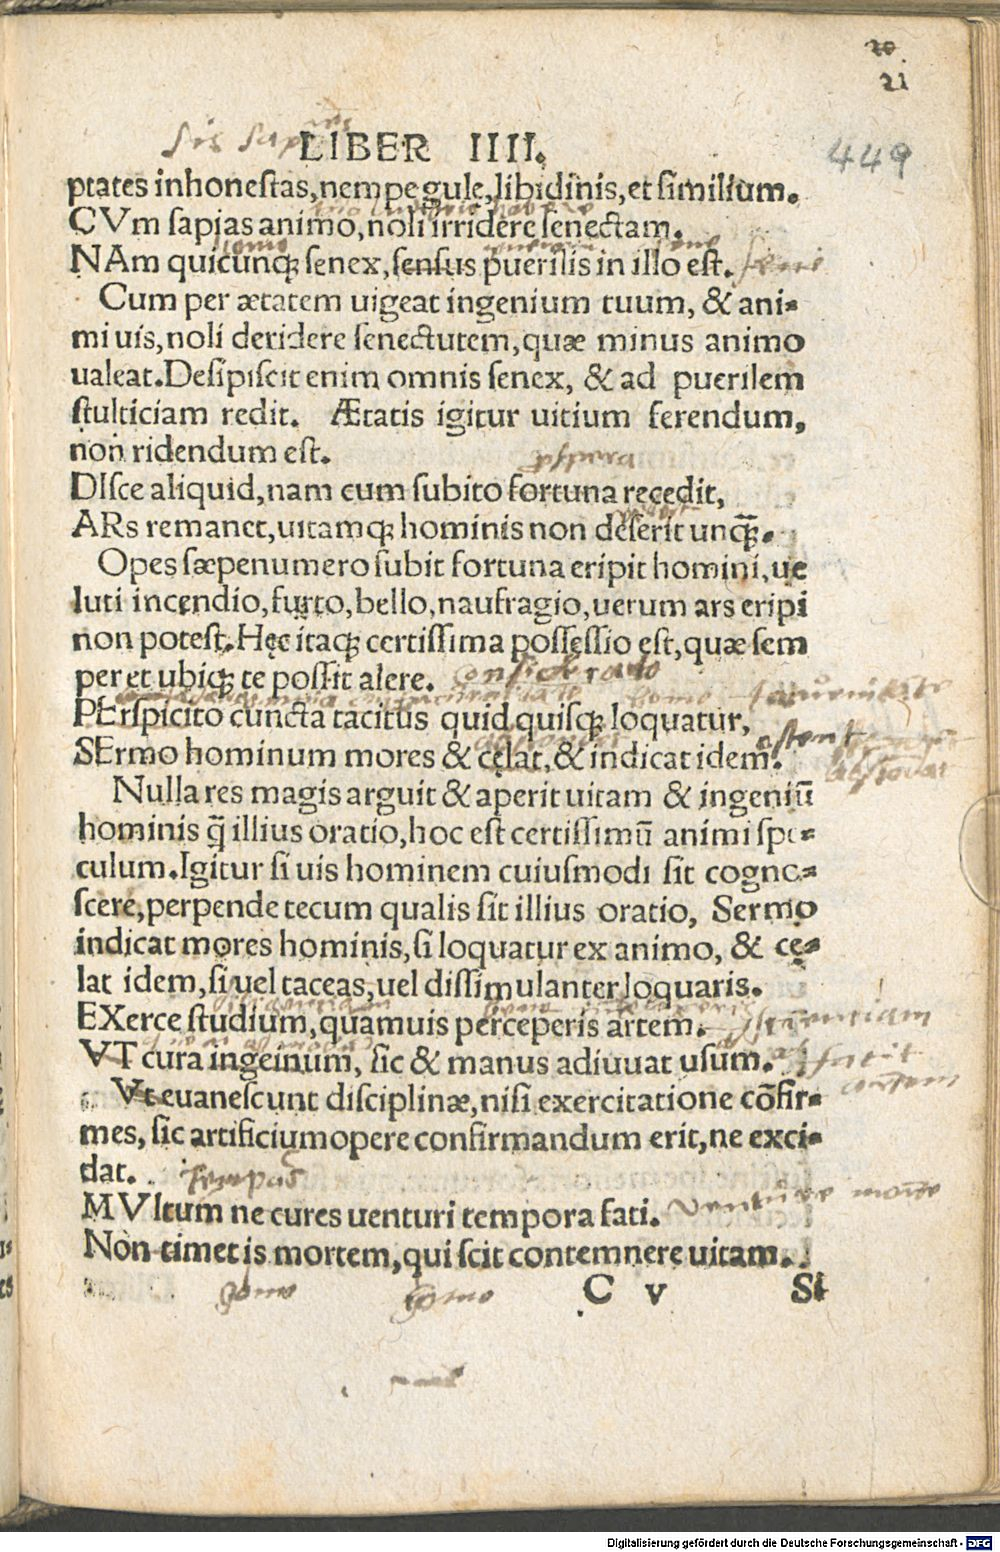 20
21
LIBER IIII.
449
ptates inhonestas, nempe gule, libidinis, et similium.
CVm sapias animo, noli irridere senectam.
NAm quicunq; senex, sensus puerilis in illo est.
Cum per ætatem uigeat ingenium tuum, & ani-
mi uis, noli deridere senectutem, quæ minus animo
ualeat. Desipiscit enim omnis senex, & ad puerilem
stulticiam redit. Ætatis igitur uitium ferendum,
non ridendum est.
DIsce aliquid, nam cum subito fortuna recedit,
ARs remanet, uitamq; hominis non deserit unq̃.
Opes sæpenumero subit fortuna eripit homini, ue
luti incendio, furto, bello, naufragio, uerum ars eripi
non potest. Hęc itaq; certissima possessio est, quæ sem
per et ubiq; te possit alere.
PErspicito cuncta tacitus quid quisq; loquatur,
SErmo hominum mores & cęlat, & indicat idem.
Nulla res magis arguit & aperit uitam & ingeniũ
hominis q̃ illius oratio, hoc est certissimũ animi spe-
culum. Igitur si uis hominem cuiusmodi sit cogno-
scere, perpende tecum qualis sit illius oratio, Sermo
indicat mores hominis, si loquatur ex animo, & cę-
lat idem, si uel taceas, uel dissimulanter loquaris.
EXerce studium, quamuis perceperis artem.
VT cura ingeinum, sic & manus adiuuat usum.
Vt euanescunt disciplinæ, nisi exercitatione cõfir-
mes, sic artificium opere confirmandum erit, ne exci-
dat.
tempus
MVltum ne cures uenturi tempora fati.
Non timet is mortem, qui scit contemnere uitam.
homo homo
C v Si
Digitalisierung gefördert durch die Deutsche Forschungsgemeinschaft - DFG